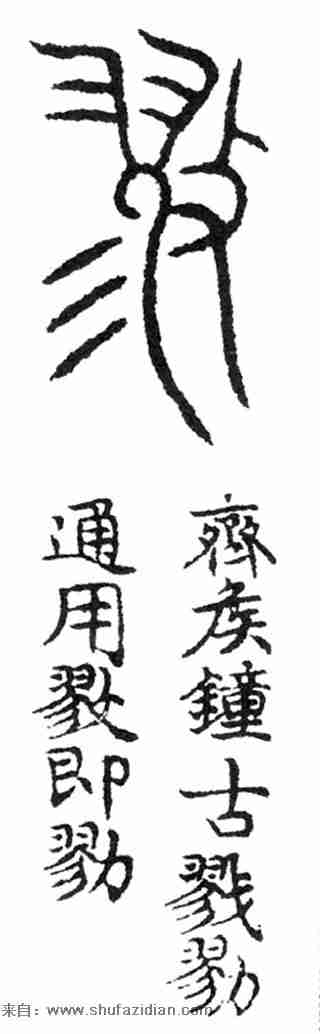 齊矦鐘古戮勠
通用即勠
来自：www.shufazidian.com